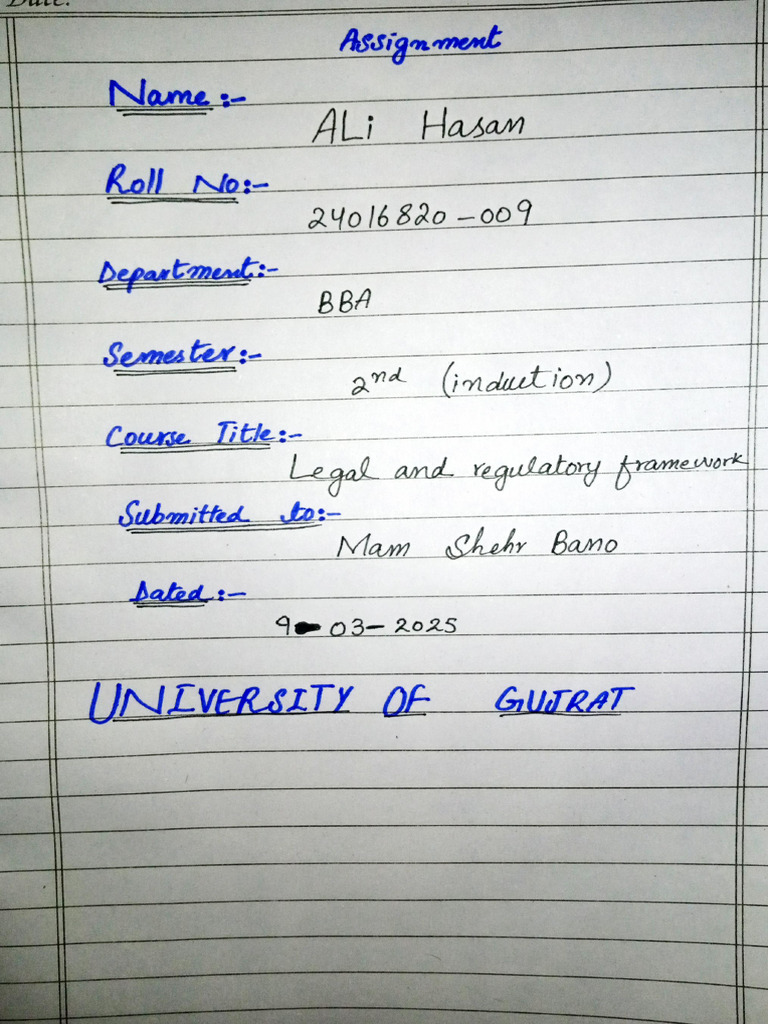 Date:
Assignment
Name :-
ALi Hasan
Roll No:-
24016820-009
Department:-
BBA
Semester:-
2nd (induction)
Course Title:-
Legal and regulatory framework
Submitted to:-
Mam Shehr Bano
Dated :-
9-03-2025
UNIVERSITY OF GUJRAT